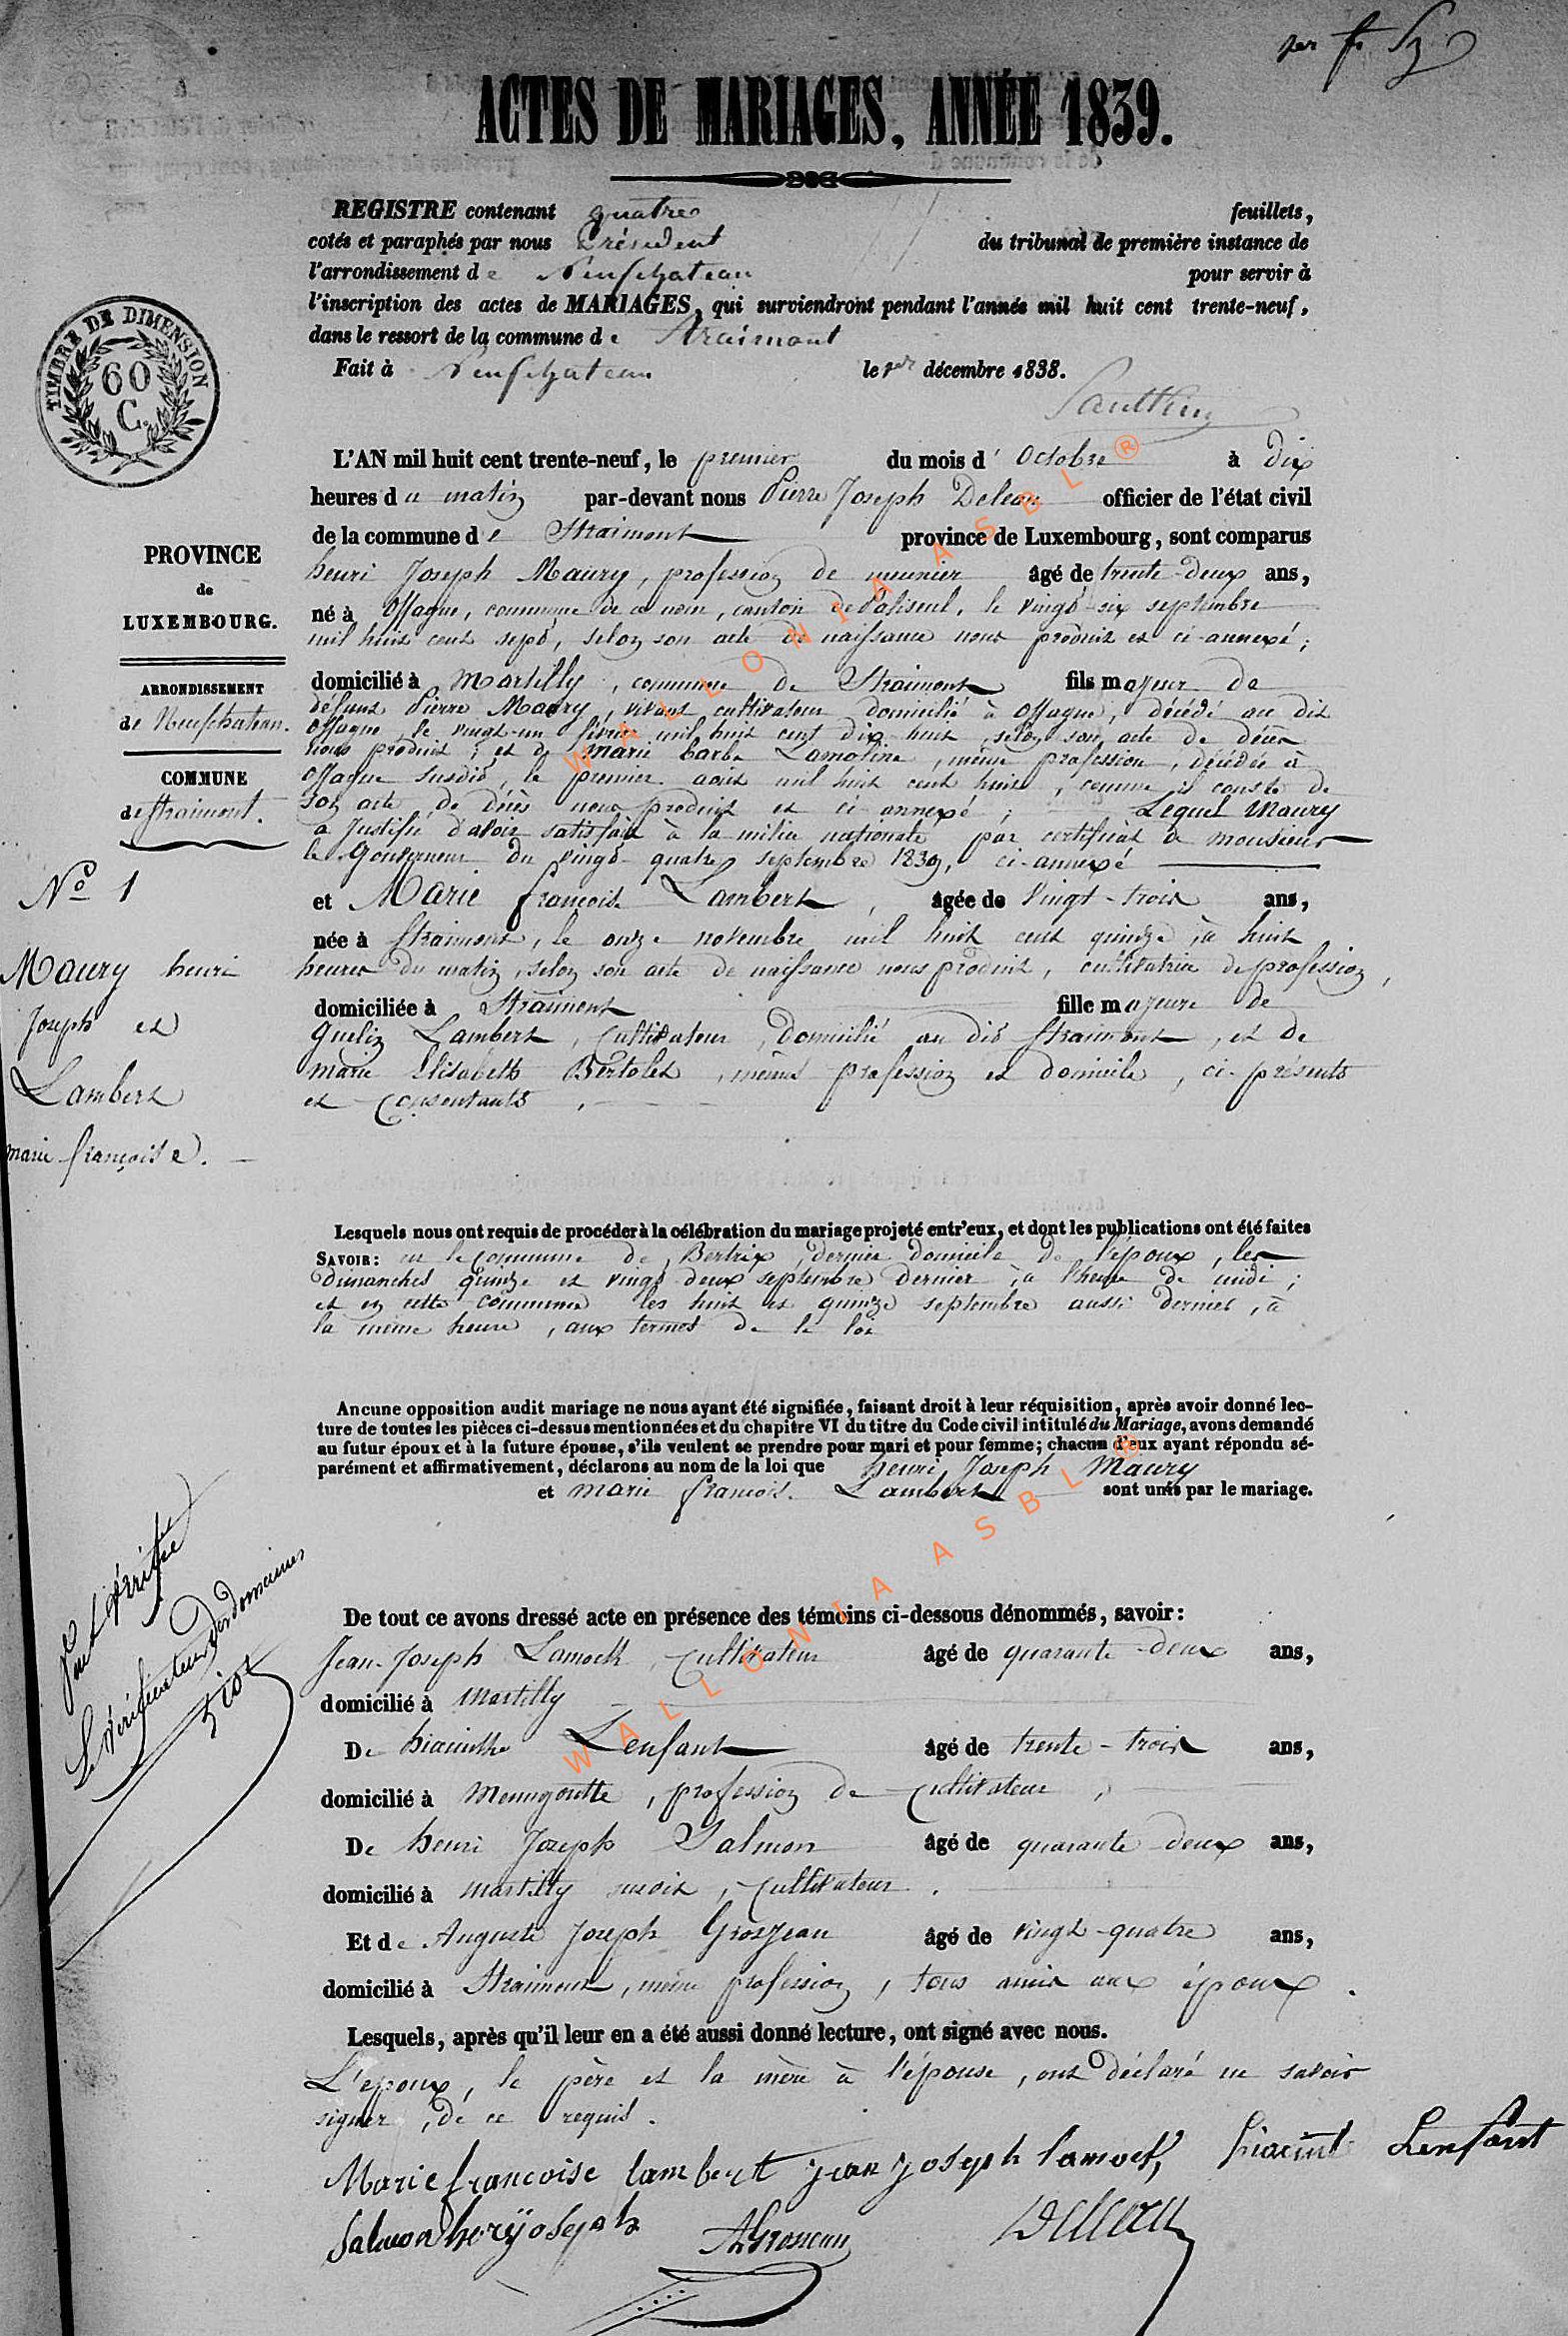 per fo
ACTES DE MARIAGES, ANNÉE 1839.
REGISTRE contenant quatre feuillets,
cotés et paraphés par nous Président du tribunal de première instance de
l'arrondissement de Neufchateau pour servir à
l'inscription des actes de MARIAGES, qui surviendront pendant l'année mil huit cent trente-neuf,
dans le ressort de la commune de Straimont
Fait à Neufchateau le 1er décembre 1838.
TIMBRE DE DIMENSION
60
C.
L'AN mil huit cent trente-neuf, le premier du mois d'Octobre à dix
heures du matin par-devant nous Pierre Joseph Deleau officier de l'état civil
de la commune de Straimont province de Luxembourg, sont comparus
henri Joseph Maury, profession de meunier âgé de trente-deux ans,
né à Offagne, commune de ce nom, canton de Paliseul, le vingt-six septembre
mil huit cent sept, selon son acte de naissance nous produit et ci-annexé;
domicilié à Martilly, commune de Straimont fils majeur de
défunt Pierre Maury, vivant cultivateur domicilié à Offagne, décédé au dit
Offagne le vingt-un février mil huit cent dix huit, selon son acte de décès
nous produit; et de Marie barbe Lamotine, même profession, décédée à
Offagne susdit, le premier août mil huit cent huit, comme il conste de
son acte de décès nous produit et ci annexé; Lequel Maury
a justifié d'avoir satisfait à la milice nationale par certificat de monsieur
le Gouverneur du vingt-quatre septembre 1839, ci-annexé
et Marie françoise Lambert, âgée de vingt-trois ans,
née à Straimont, le onze novembre mil huit cent quinze, à huit
heures du matin, selon son acte de naissance nous produit, cultivatrice de profession,
domiciliée à Straimont fille majeure de
Guelin Lambert, cultivateur, domicilié au dit Straimont, et de
marie Elisabeth Bertolet, même profession et domicile, ci-présents
et consentants.
PROVINCE
de
LUXEMBOURG.
ARRONDISSEMENT
de Neufchateau.
COMMUNE
de Straimont.
No 1
Maury henri
Joseph et
Lambert
marie françoise.
Lesquels nous ont requis de procéder à la célébration du mariage projeté entr'eux, et dont les publications ont été faites
SAVOIR: en la commune de Bertrix, dernier domicile de l'époux, les
dimanches quinze et vingt deux septembre dernier, à l'heure de midi;
et en cette commune les huit et quinze septembre aussi dernier, à
la même heure, aux termes de la loi
Aucune opposition audit mariage ne nous ayant été signifiée, faisant droit à leur réquisition, après avoir donné lec-
ture de toutes les pièces ci-dessus mentionnées et du chapitre VI du titre du Code civil intitulé du Mariage, avons demandé
au futur époux et à la future épouse, s'ils veulent se prendre pour mari et pour femme; chacun d'eux ayant répondu sé-
parément et affirmativement, déclarons au nom de la loi que henri Joseph Maury
et marie françoise Lambert sont unis par le mariage.
Le vérificateur des domaines
De tout ce avons dressé acte en présence des témoins ci-dessous dénommés, savoir:
Jean-Joseph Lamock, cultivateur âgé de quarante-deux ans,
domicilié à Martilly
De hiacinthe Lenfant âgé de trente-trois ans,
domicilié à Menugoutte, profession de cultivateur,
De henri Joseph Salmon âgé de quarante deux ans,
domicilié à Martilly, cultivateur.
Et de Auguste Joseph Grosjean âgé de vingt-quatre ans,
domicilié à Straimont, même profession, tous amis aux époux.
Lesquels, après qu'il leur en a été aussi donné lecture, ont signé avec nous.
L'époux, le père et la mère à l'épouse, ont déclaré ne savoir
signer, de ce requis.
Marie francoise lambert jean joseph lamock, hiacint Lenfant
Salmon heryjoseph AGrosjean Deleau
WALLONIA ASBL ®
WALLONIA ASBL ®